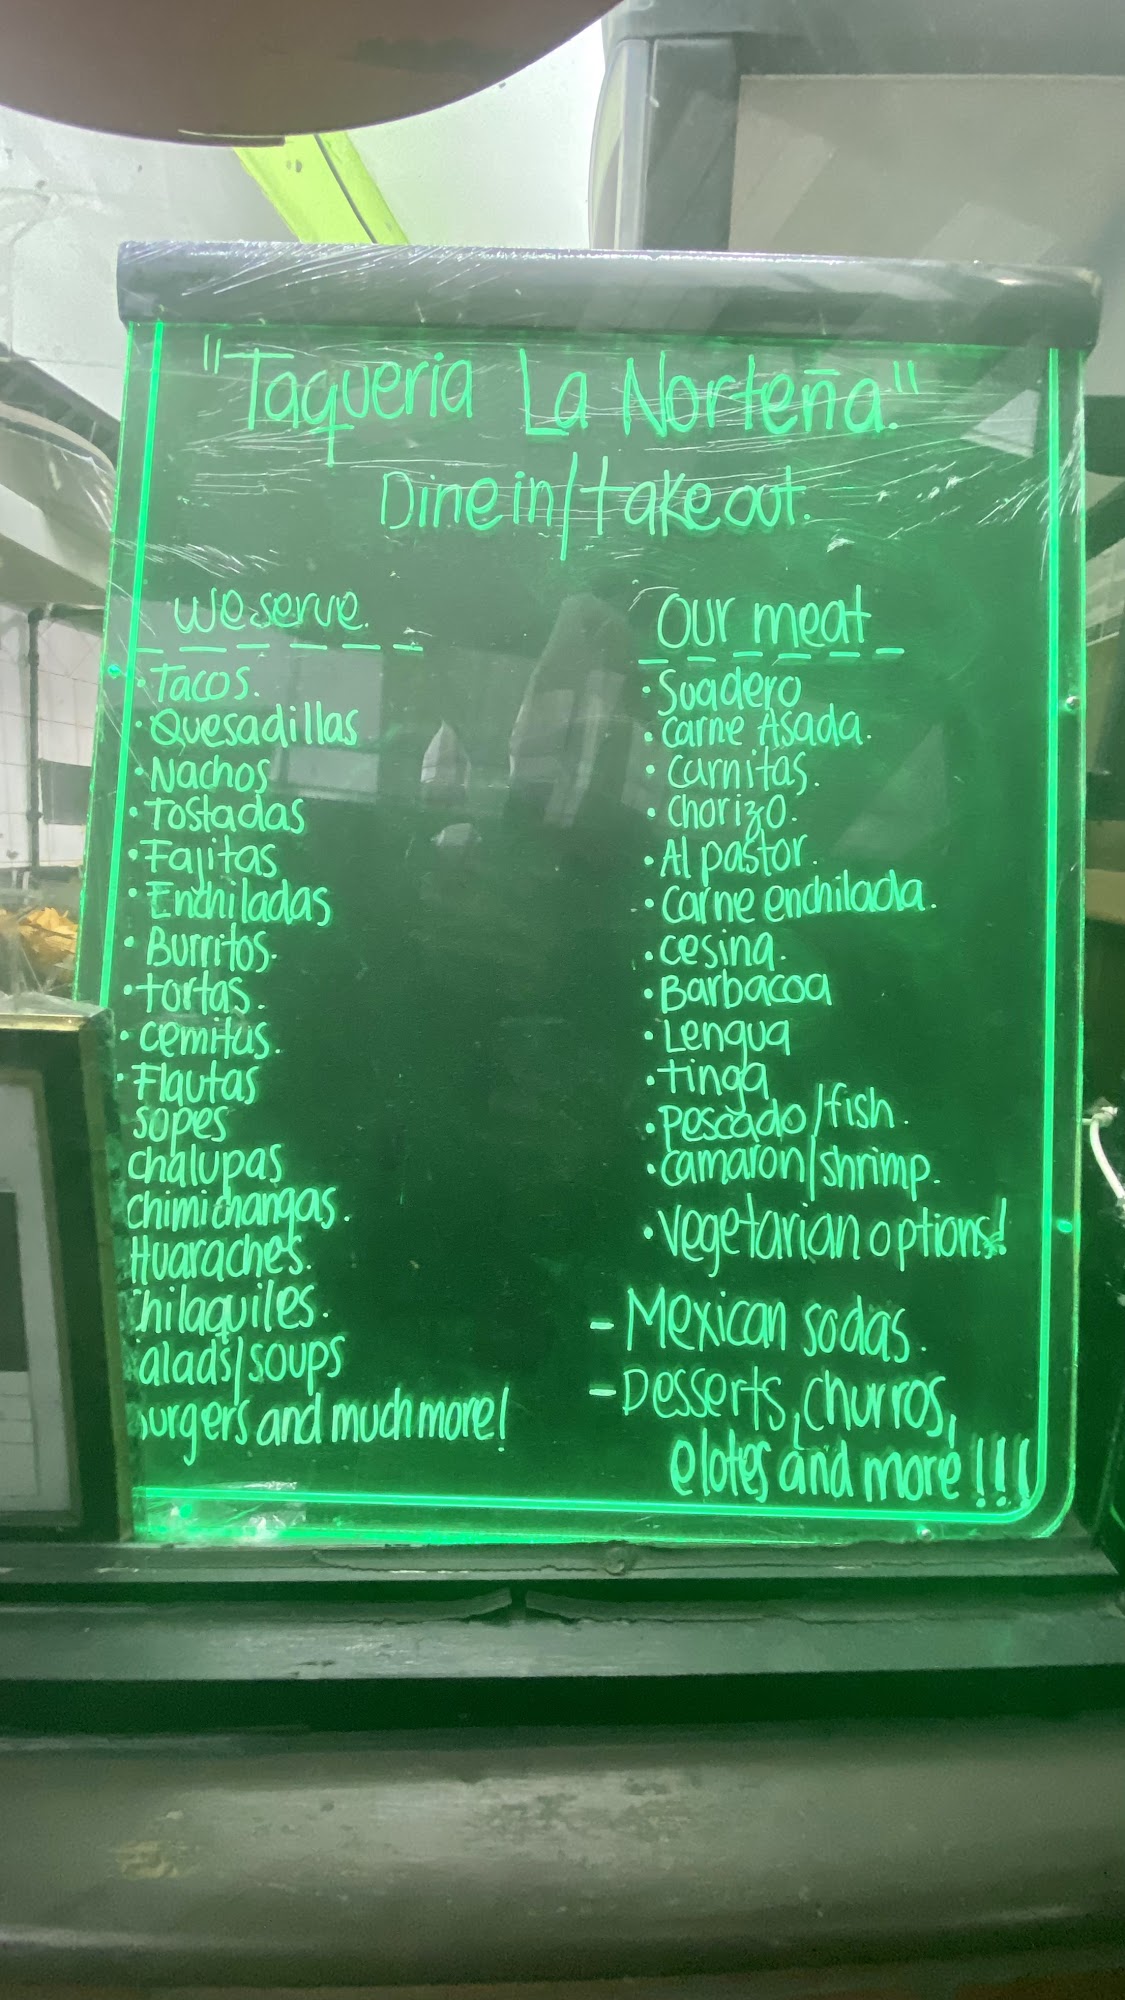 "Taqueria La Norteña."
Dine in/takeout.
We serve.
• Tacos.
• Quesadillas
• Nachos
• Tostadas
• Fajitas
• Enchiladas
• Burritos.
• tortas.
• cemitas.
• Flautas
sopes
chalupas
chimichangas.
Huaraches.
hilaquiles.
alads/soups
urgers and much more!
Our meat
• Suadero
• carne Asada.
• carnitas.
• chorizo.
• Al pastor.
• carne enchilada.
• cesina.
• Barbacoa
• Lengua
• tinga
• pescado/fish.
• camaron/shrimp.
• vegetarian options!
- Mexican sodas.
- Desserts, churros,
elotes and more!!!